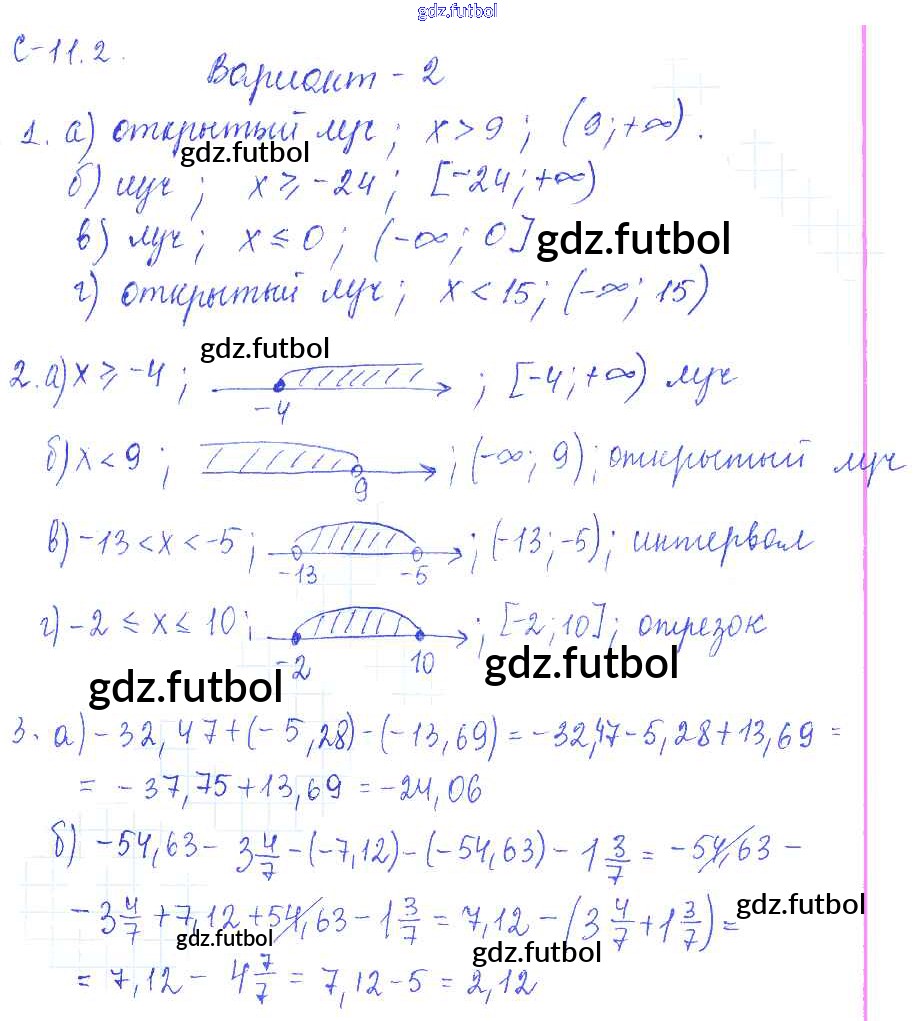 gdz.futbol
С-11.2.
Вариант - 2
1. а) открытый луч; x > 9; (9; +∞).
gdz.futbol
б) луч; x ⩾ -24; [-24; +∞)
в) луч; x ≤ 0; (-∞; 0]
gdz.futbol
г) открытый луч; x < 15; (-∞; 15)
gdz.futbol
2. а) x ⩾ -4; -4; [-4; +∞) луч
б) x < 9; 9; (-∞; 9); открытый луч
в) -13 < x < -5; -13 -5; (-13; -5); интервал
г) -2 ≤ x ≤ 10; -2 10; [-2; 10]; отрезок
gdz.futbol
gdz.futbol
3. а) -32,47+(-5,28)-(-13,69) = -32,47-5,28+13,69 =
= -37,75+13,69 = -24,06
б) -54,63 - 3 4/7 - (-7,12) - (-54,63) - 1 3/7 = -54,63 -
- 3 4/7 + 7,12 + 54,63 - 1 3/7 = 7,12 - (3 4/7 + 1 3/7) =
gdz.futbol
gdz.futbol
gdz.futbol
= 7,12 - 4 7/7 = 7,12 - 5 = 2,12